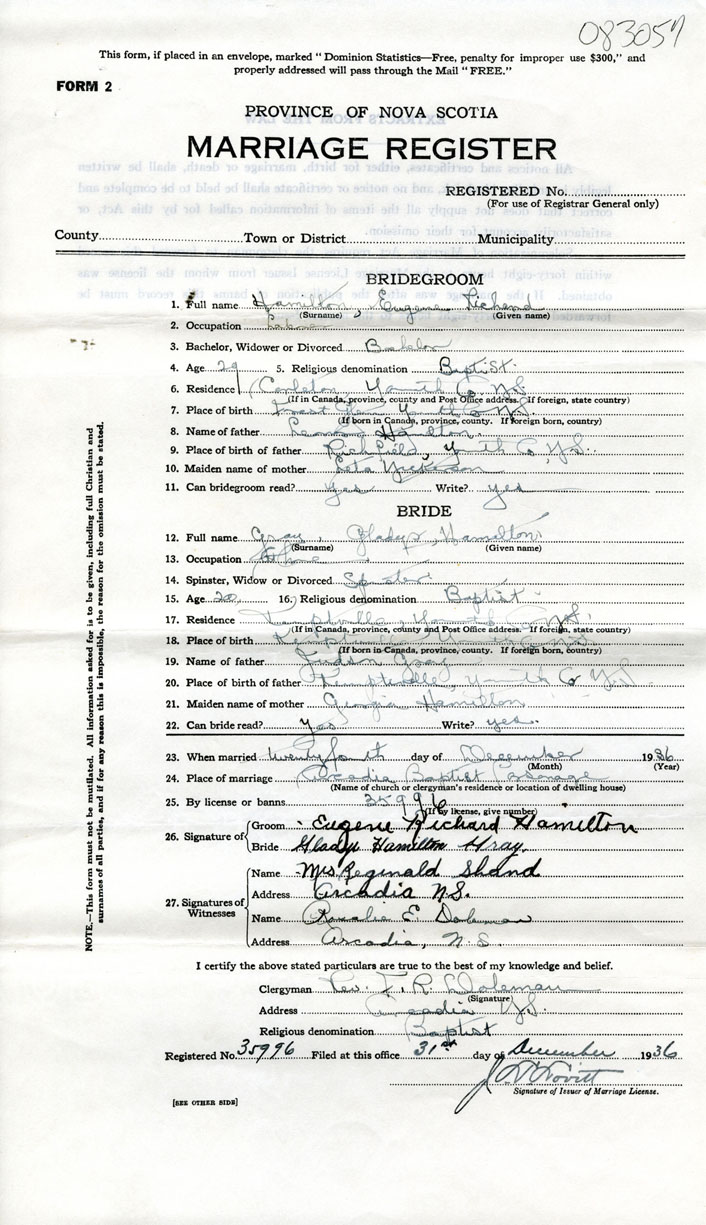 083057
This form, if placed in an envelope, marked "Dominion Statistics—Free, penalty for improper use $300," and
properly addressed will pass through the Mail "FREE."
FORM 2
PROVINCE OF NOVA SCOTIA
MARRIAGE REGISTER
REGISTERED No.
(For use of Registrar General only)
County Town or District Municipality
BRIDEGROOM
1. Full name Hamilton, Eugene Richard
(Surname) (Given name)
2. Occupation Laborer
3. Bachelor, Widower or Divorced Bachelor
4. Age 29 5. Religious denomination Baptist.
6. Residence Carleton, Yarmouth Co., N.S.
(If in Canada, province, county and Post Office address. If foreign, state country)
7. Place of birth Forest Glen, Yarmouth Co. N.S.
(If born in Canada, province, county. If foreign born, country)
8. Name of father Hamilton
9. Place of birth of father Richfield, Yarmouth Co N.S.
10. Maiden name of mother
11. Can bridegroom read? Yes Write? yes
BRIDE
12. Full name Gray, Gladys Hamilton
(Surname) (Given name)
13. Occupation At Home
14. Spinster, Widow or Divorced Spinster
15. Age 20 16. Religious denomination Baptist
17. Residence Kemptville, Yarmouth Co N.S.
(If in Canada, province, county and Post Office address. If foreign, state country)
18. Place of birth Kemptville
(If born in Canada, province, county. If foreign born, country)
19. Name of father Judson Gray
20. Place of birth of father Kemptville, Yarmouth Co N.S.
21. Maiden name of mother Georgia Hamilton
22. Can bride read? Yes Write? yes.
23. When married twenty fourth day of December 1936
(Month) (Year)
24. Place of marriage Arcadia Baptist Parsonage
(Name of church or clergyman's residence or location of dwelling house)
25. By license or banns 35996
(If by license, give number)
26. Signature of Groom Eugene Richard Hamilton
Bride Gladys Hamilton Gray.
27. Signatures of Witnesses Name Mrs Reginald Shand
Address Arcadia N.S.
Name Rosalie E. Doleman
Address Arcadia, N.S.
I certify the above stated particulars are true to the best of my knowledge and belief.
Clergyman Rev. F. R. Doleman
(Signature)
Address Arcadia N.S.
Religious denomination Baptist
Registered No. 35996 Filed at this office 31st day of December 1936
Signature of Issuer of Marriage License.
[SEE OTHER SIDE]
NOTE.—This form must not be mutilated. All information asked for is to be given, including full Christian and
surnames of all parties, and if for any reason this is impossible, the reason for the omission must be stated.